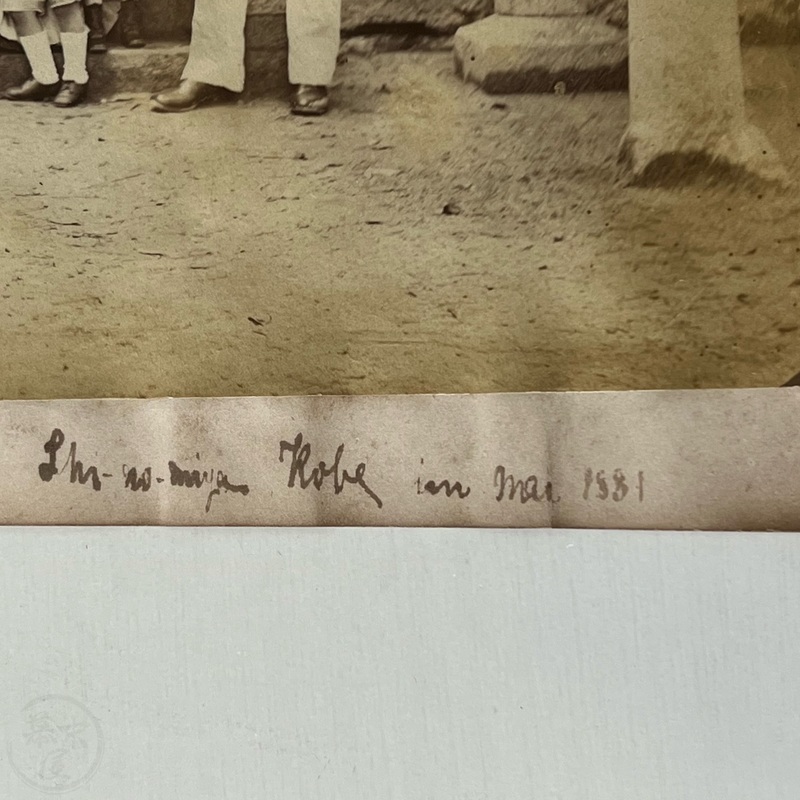 Shi-no-miya Kobe im Mai 1881